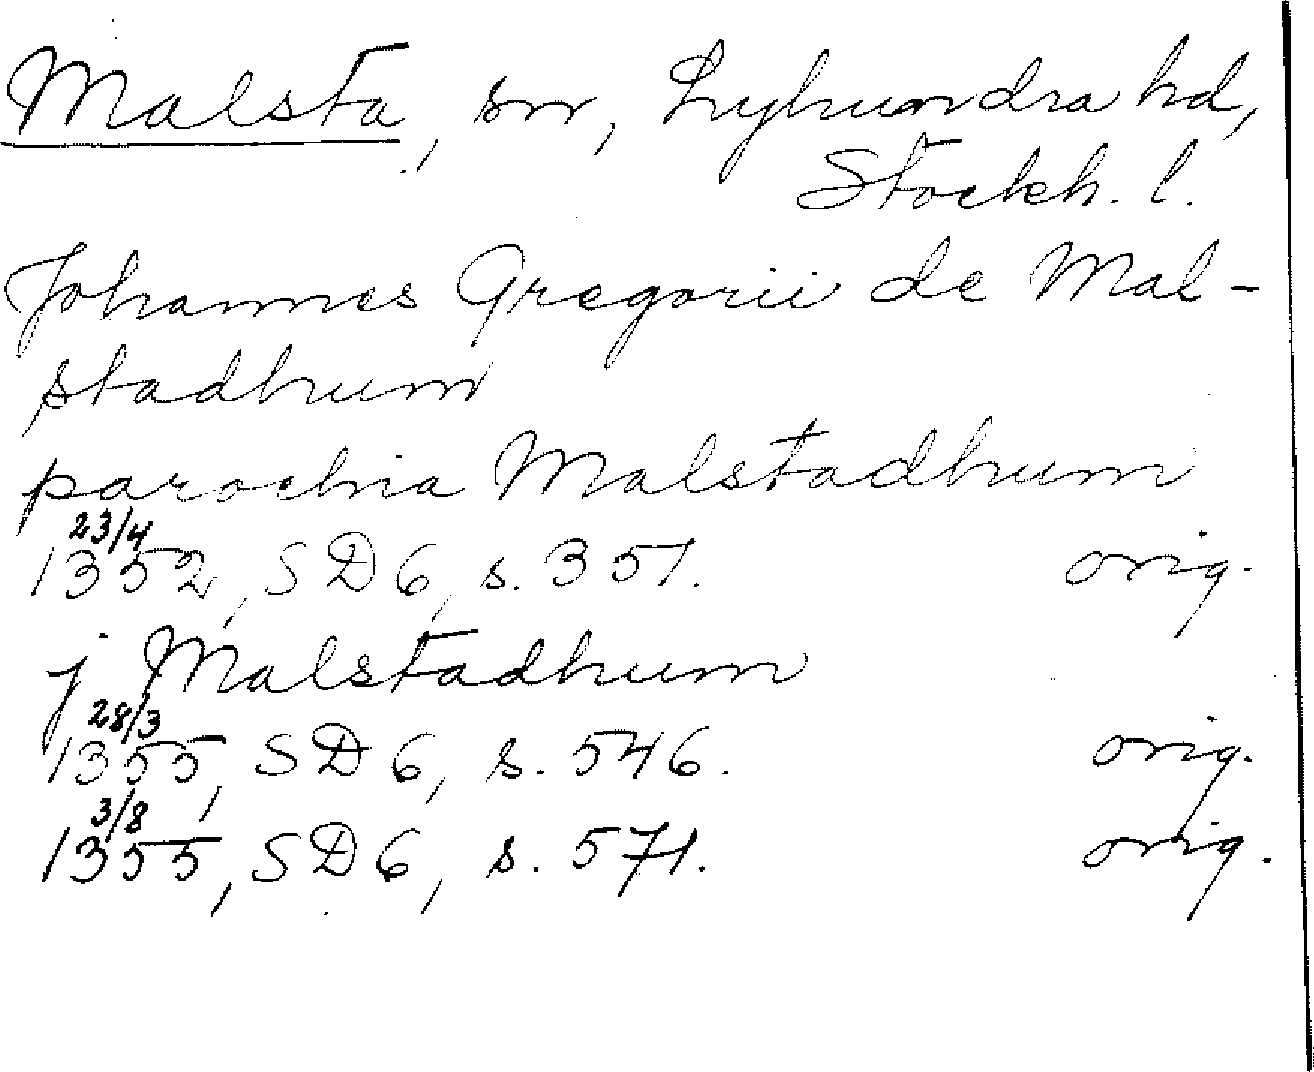 Malsta, sn, Lyhundra hd,
Stockh. l.
Johannes Gregorii de Mal-
stadhum
parochia Malstadhum
23/4
1352, SD 6, s. 351. orig.
j Malstadhum
28/3
1355, SD 6, s. 546. orig.
3/8
1355, SD 6, s. 571. orig.